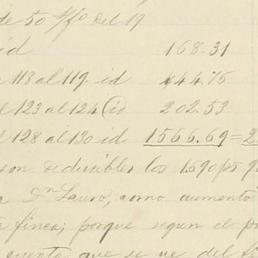 de 50 del 19
id 168.31
118 al 119 id 444.76
123 al 124 (id 202.53
128 al 130 id 1566.69=2
son deducibles los 1.690 ps
Dn Lauro, como aumento
finca; porque segun el
cuenta que se ve del